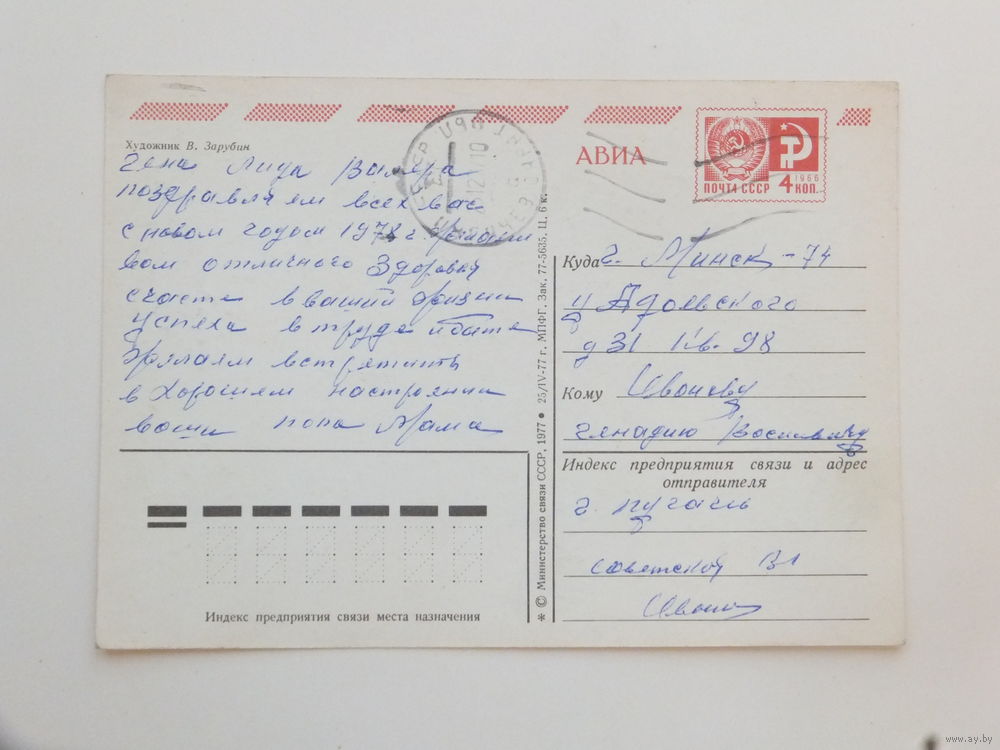 Художник В. Зарубин
Гена Лида Валера
поздравляем всех вас
с новом годом 1978 г. Желаем
вам отличного Здоровья
счастя в вашей жизни
Успеха в труде
Желаем встретить
в хорошем настроении
ваши папа Мама
АВИА
ПОЧТА СССР 4 КОП.
1966
Куда г. Минск-74
у Адоевского
д 31 кв. 98
Кому Иванову
Генадию
Индекс предприятия связи и адрес
отправителя
г.
советской
Индекс предприятия связи места назначения
* © Министерство связи СССР, 1977 • 25/IV-77 г. МПФГ. Зак. 77-5635. Ц. 6 к.
www.ay.by